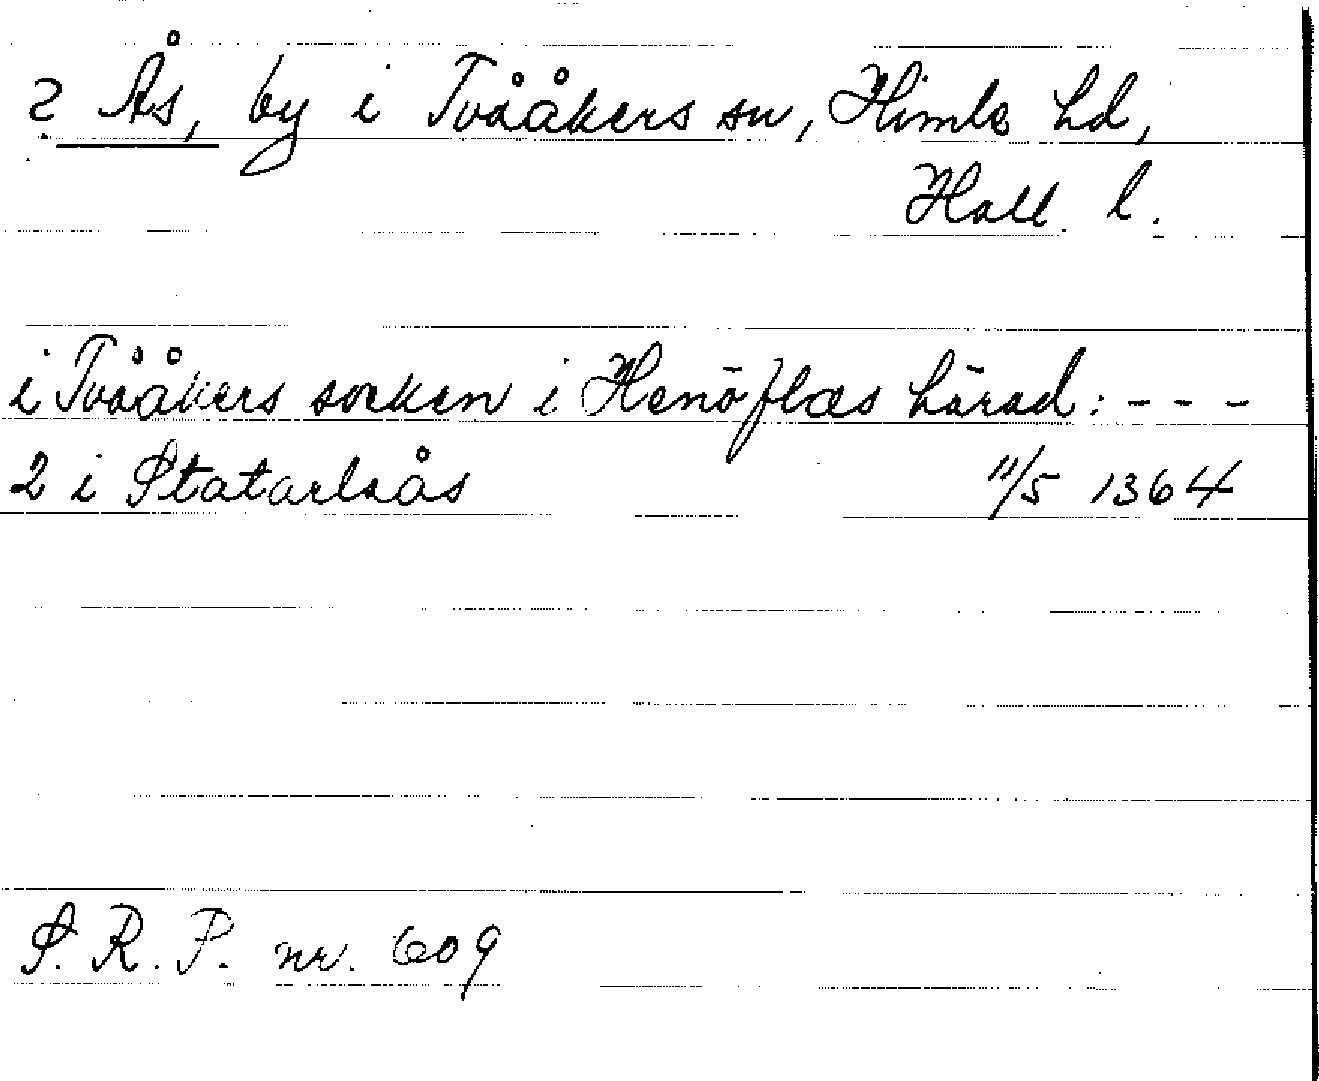 ? Ås, by i Tvååkers sn, Himle hd,
Hall. l.
i Tvååkers socken i Henöflæs härad: - - -
2 i Statarlsås 11/5 1364
S. R. P. nr. 609